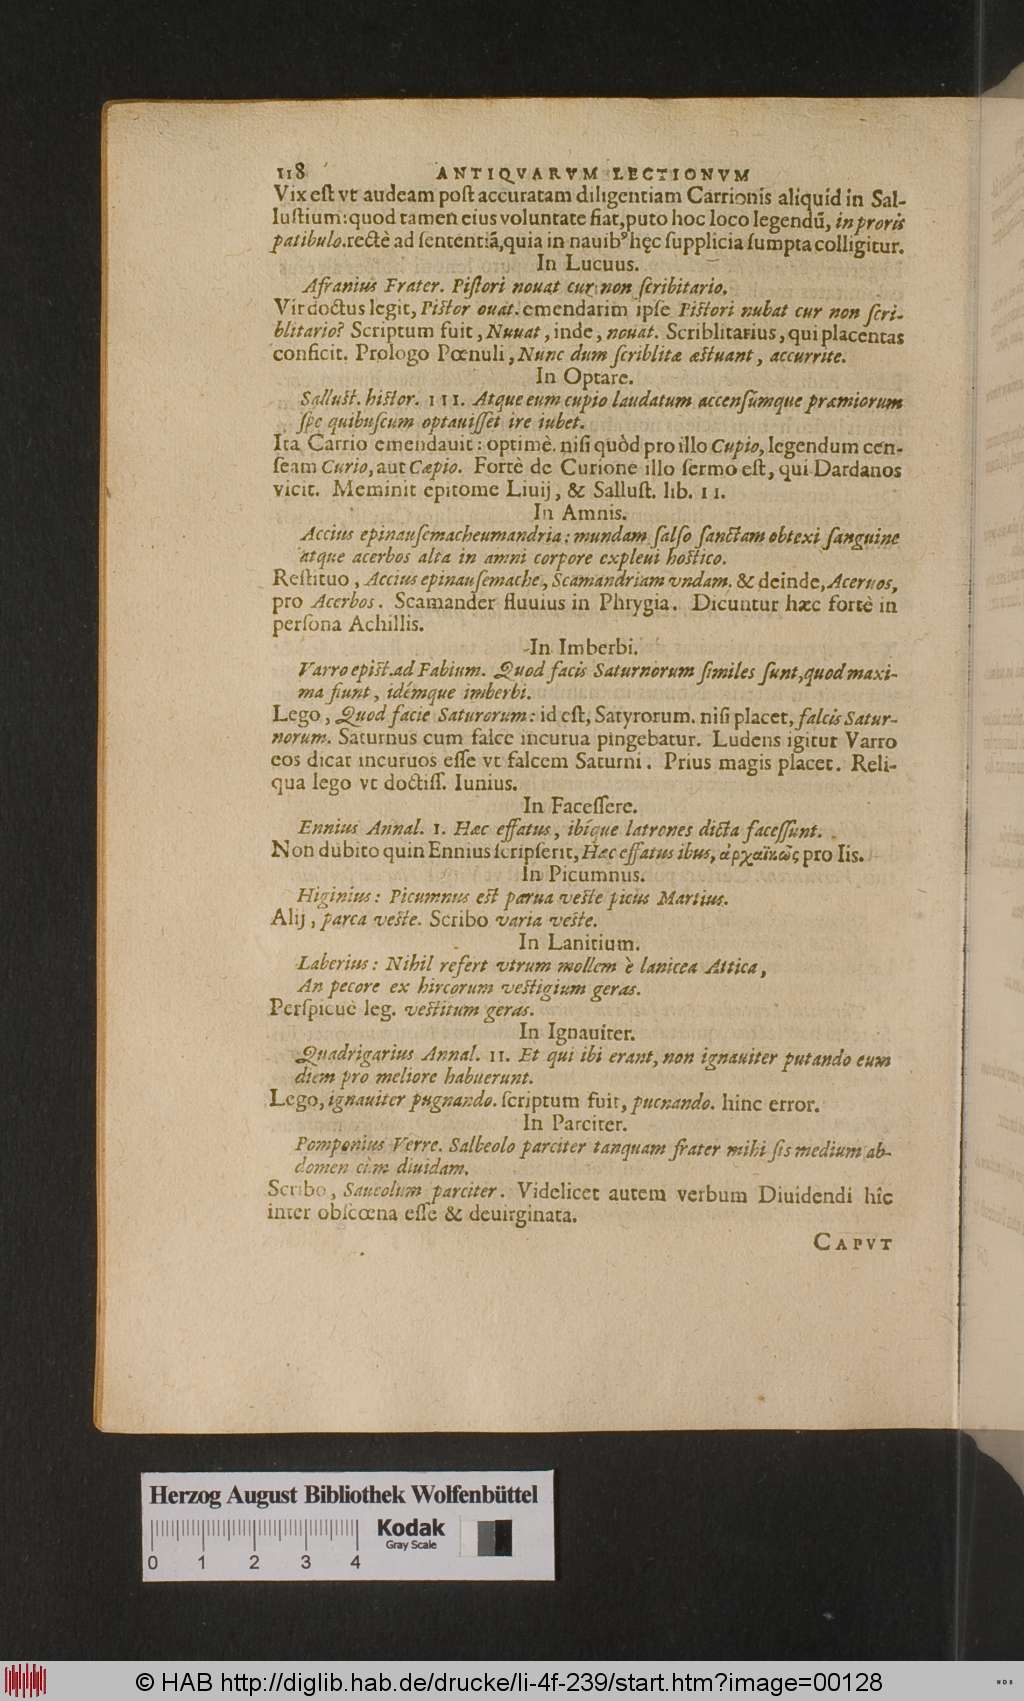 118 ANTIQVARVM LECTIONVM
Vix eſt vt audeam poſt accuratam diligentiam Carrionis aliquid in Sal-
luſtium: quod tamen eius voluntate fiat, puto hoc loco legendū, in proris
patibulo. rectè ad ſententiā, quia in nauibꝰ hęc ſupplicia ſumpta colligitur.
In Lucuus.
Afranius Frater. Piſtori nouat cur non ſcribitario.
Vir doctus legit, Piſtor ouat. emendarim ipſe Piſtori nubat cur non ſcri-
blitario? Scriptum fuit, Nuuat, inde, nouat. Scriblitarius, qui placentas
conficit. Prologo Pœnuli, Nunc dum ſcriblitæ æſtuant, accurrite.
In Optare.
Salluſt. hiſtor. III. Atque eum cupio laudatum accenſumque præmiorum
ſpe quibuſcum optauiſſet ire iubet.
Ita Carrio emendauit: optimè. niſi quòd pro illo Cupio, legendum cen-
ſeam Curio, aut Cæpio. Fortè de Curione illo ſermo eſt, qui Dardanos
vicit. Meminit epitome Liuij, & Salluſt. lib. II.
In Amnis.
Accius epinauſemacheumandria: mundam ſalſo ſanctam obtexi ſanguine
atque acerbos alta in amni corpore expleui hoſtico.
Reſtituo, Accius epinauſemache, Scamandriam vndam. & deinde, Aceruos,
pro Acerbos. Scamander fluuius in Phrygia. Dicuntur hæc fortè in
perſona Achillis.
In Imberbi.
Varro epiſt. ad Fabium. Quod facis Saturnorum ſimiles ſunt, quod maxi-
ma fiunt, idémque imberbi.
Lego, Quod facie Saturorum: id eſt, Satyrorum. niſi placet, falcis Satur-
norum. Saturnus cum falce incurua pingebatur. Ludens igitur Varro
eos dicat incuruos eſſe vt falcem Saturni. Prius magis placet. Reli-
qua lego vt doctiſſ. Iunius.
In Faceſſere.
Ennius Annal. I. Hæc effatus, ibíque latrones dicta faceſſunt.
Non dubito quin Ennius ſcripſerit, Hæc effatus ibus, ἀρχαϊκῶς pro Iis.
In Picumnus.
Higinius: Picumnus eſt parua veſte picus Martius.
Alij, parca veſte. Scribo varia veſte.
In Lanitium.
Laberius: Nihil refert vtrum mollem è lanicea Attica,
An pecore ex hircorum veſtigium geras.
Perſpicuè leg. veſtitum geras.
In Ignauiter.
Quadrigarius Annal. II. Et qui ibi erant, non ignauiter putando eum
diem pro meliore habuerunt.
Lego, ignauiter pugnando. ſcriptum fuit, pucnando. hinc error.
In Parciter.
Pomponius Verre. Salbeolo parciter tanquam frater mihi ſis medium ab-
domen cum diuidam.
Scribo, Saueolum parciter. Videlicet autem verbum Diuidendi hîc
inter obſcœna eſſe & deuirginata.
CAPVT
Herzog August Bibliothek Wolfenbüttel
Kodak
Gray Scale
0 1 2 3 4
© HAB http://diglib.hab.de/drucke/li-4f-239/start.htm?image=00128